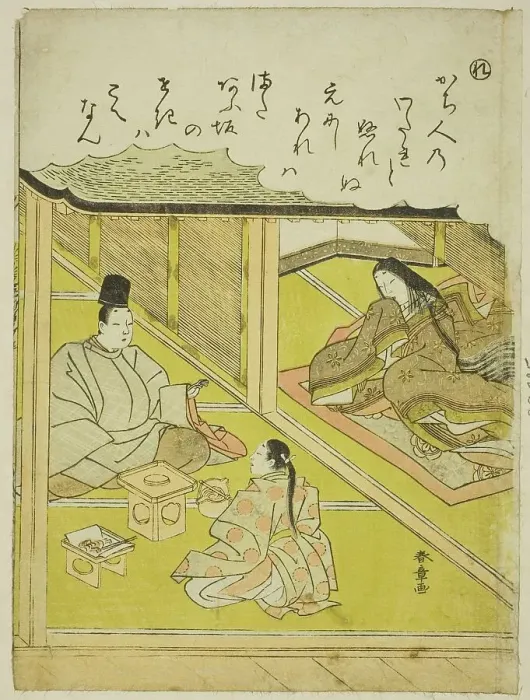 れ
かち人乃
わたれと
濡れぬ
えにし
あれハ
また
あふ坂
の
せき
ハ
こえ
なん
春章画